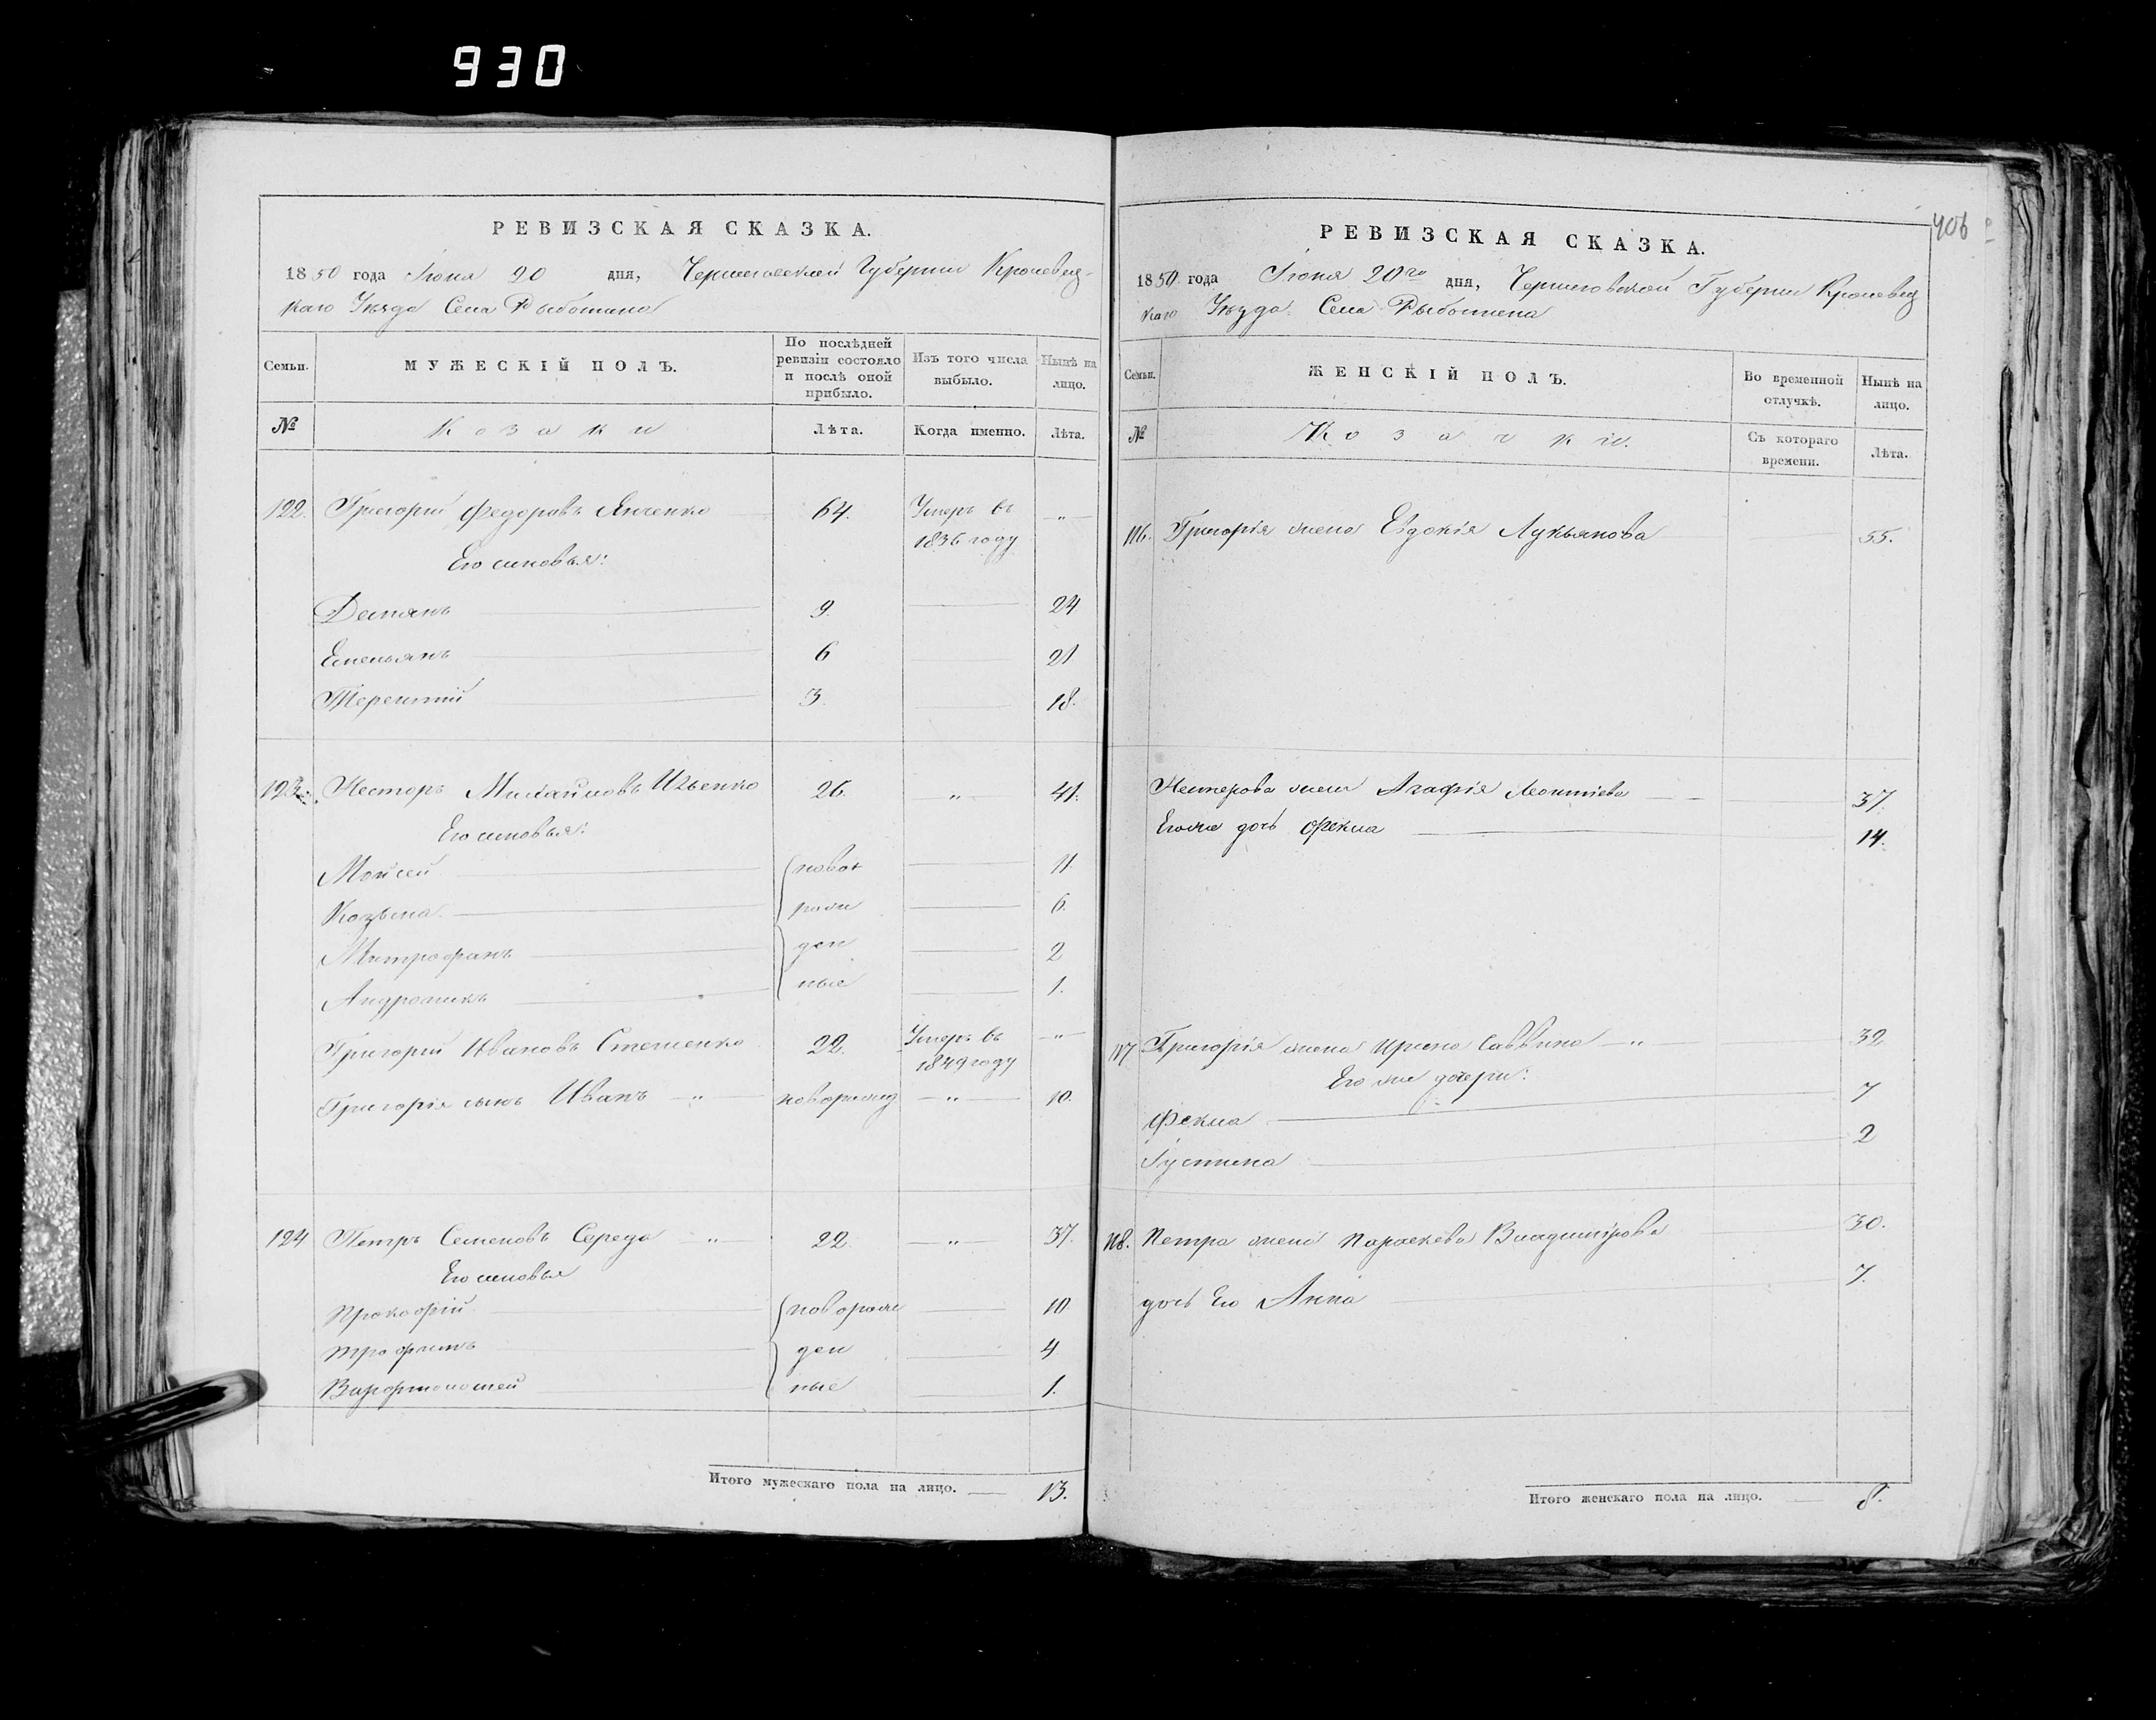 930
РЕВИЗСКАЯ СКАЗКА.
1850 года Іюня 20 дня, Черниговской Губерніи Кролевец-
каго Уѣзда Села Рыботина
Семьи.
МУЖЕСКІЙ ПОЛЪ.
По послѣдней ревизіи состояло и послѣ оной прибыло.
Изъ того числа выбыло.
Нынѣ на лицо.
№
Козаки
Лѣта.
Когда именно.
Лѣта.
122. Григорій Федоровъ Янченко 64. Умеръ въ 1836 году „
Его сыновья:
Демянъ 9. 24.
Емельянъ 6 21
Терентій 3. 18.
123. Несторъ Михайловъ Ильенко 26. „ 41.
Его сыновья:
Мойсей новоr 11.
Козьма рож 6.
Митрофанъ ден 2
Андроникъ ные 1.
Григорій Ивановъ Стешенко 22. Умеръ въ 1849 году „
Григорія сынъ Иванъ „ новорожд „ 10.
124 Петръ Семеновъ Середа „ 22. „ 37.
Его сыновья
Прокофій новорож 10
Трофимъ ден 4
Варфоломей ные 1.
Итого мужескаго пола на лицо. 13.
406
РЕВИЗСКАЯ СКАЗКА.
1850 года Іюня 20го дня, Черниговской Губерніи Кролевец
каго Уѣзда Села Рыботина
Семьи.
ЖЕНСКІЙ ПОЛЪ.
Во временной отлучкѣ.
Нынѣ на лицо.
№
Козачки.
Съ котораго времени.
Лѣта.
116. Григорія жена Евдокія Лукьянова 55.
Нестерова жена Агафія Леонтіева 37.
Егоже дочь Фекла 14.
117 Григорія жена Ирина Саввина „ 32
Его же дочери:
Фекла 7
Іустина 2
118. Петра жена Параскева Владимірова 30.
дочь Его Анна 7.
Итого женскаго пола на лицо. 8.